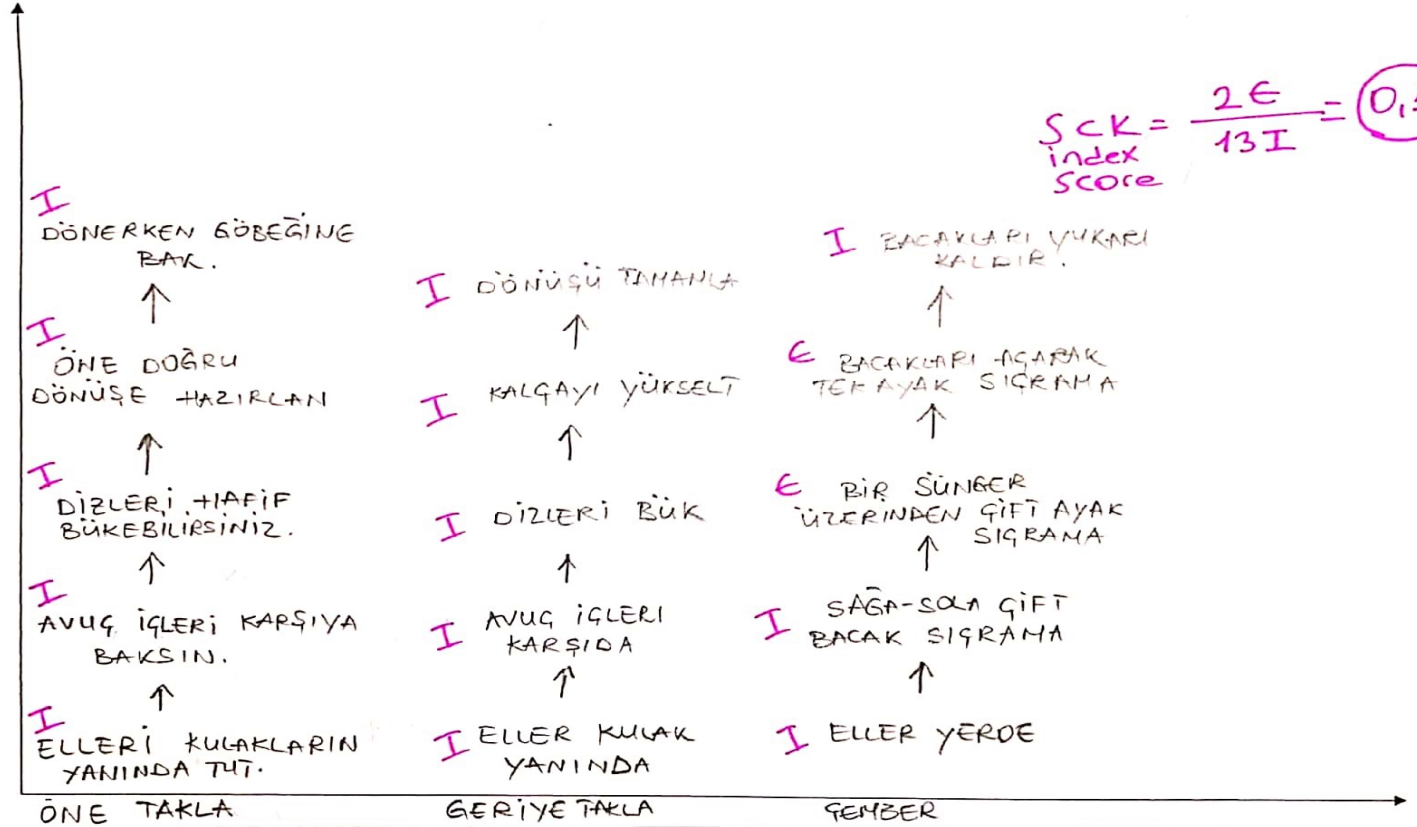 SCK = 2E / 13I = 0,
index
score
I
DÖNERKEN GÖBEĞİNE
BAK.
↑
I
ÖNE DOĞRU
DÖNÜŞE HAZIRLAN
↑
I
DİZLERİ HAFİF
BÜKEBİLİRSİNİZ.
↑
I
AVUÇ İÇLERİ KARŞIYA
BAKSIN.
↑
I
ELLERİ KULAKLARIN
YANINDA TUT.
ÖNE TAKLA
I DÖNÜŞÜ TAMAMLA
↑
I KALÇAYI YÜKSELT
↑
I DİZLERİ BÜK
↑
I AVUÇ İÇLERİ
KARŞIDA
↑
I ELLER KULAK
YANINDA
GERİYE TAKLA
I BACAKLARI YUKARI
KALDIR.
↑
E BACAKLARI AÇARAK
TEK AYAK SIÇRAMA
↑
E BİR SÜNGER
ÜZERINDEN ÇİFT AYAK
SIÇRAMA
↑
I SAĞA-SOLA ÇİFT
BACAK SIÇRAMA
↑
I ELLER YERDE
ÇEMBER